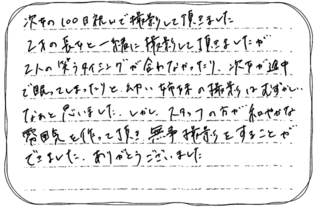 次女の100日祝いで撮影して頂きました
2才の長女と一緒に撮影して頂きましたが
2人の笑うタイミングが合わなかったり、次女が途中
で眠ってしまったりと、幼い姉妹の撮影はむずかしい
なぁと思いました。しかし、スタッフの方が和やかな
雰囲気を作って頂き 無事撮影をすることが
できました。ありがとうございました